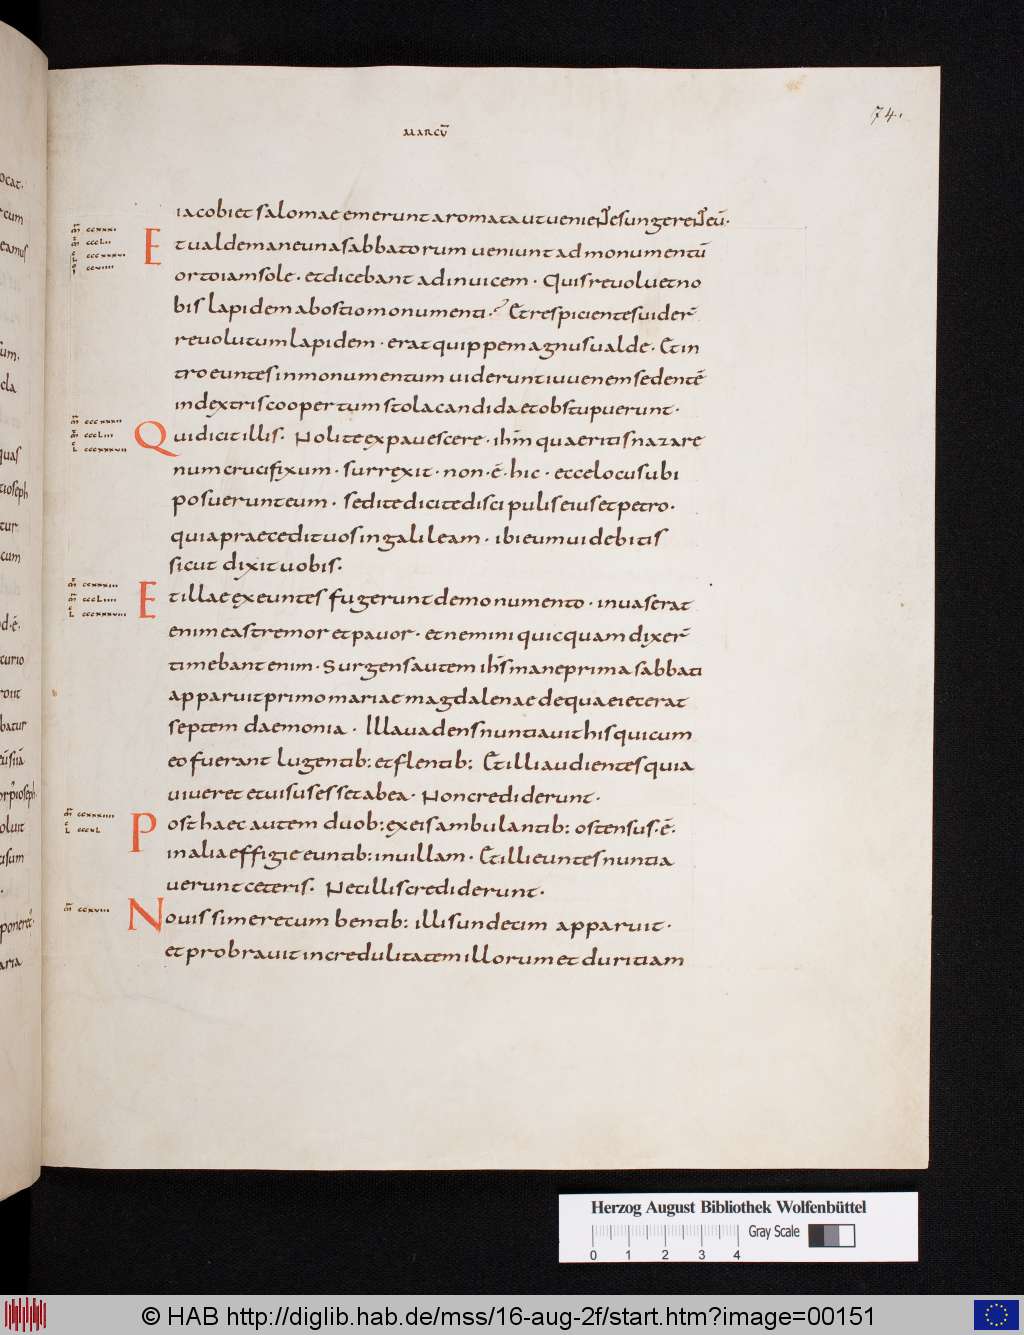 MARCŪ
74.
iacobi et salomae emerunt aromata ut venientes ungerent eū·
Et ualde mane una sabbatorum ueniunt ad monumentū
orto iam sole · et dicebant ad inuicem · Quis reuoluet no
bis lapidem ab ostio monumenti ·? Et respicientes uider̄
reuolutum lapidem · erat quippe magnus ualde · Et in
troeuntes in monumentum uiderunt iuuenem sedentē
in dextris coopertum stola candida et obstupuerunt ·
Qui dicit illis · Nolite expauescere · ihm̄ quaeritis nazare
num crucifixum · surrexit · non · ē · hic · ecce locus ubi
posuerunt eum · sed ite dicite discipulis eius et petro ·
quia praecedit uos in galileam · ibi eum uidebitis
sicut dixit uobis ·
Et illae exeuntes fugerunt de monumento · inuaserat
enim eas tremor et pauor · et nemini quicquam dixer̄
timebant enim · Surgens autem ihs̄ mane prima sabbati
apparuit primo mariae magdalenae de qua eiecerat
septem daemonia · Illa uadens nuntiauit his qui cum
eo fuerant lugentib: et flentib: Et illi audientes quia
uiueret et uisus esset ab ea · Non crediderunt ·
Post haec autem duob: ex eis ambulantib: ostensus · ē ·
in alia effigie euntib: in uillam · Et illi euntes nuntia
uerunt ceteris · Nec illis crediderunt ·
Nouissime recumbentib: illis undecim apparuit ·
et probrauit incredulitatem illorum et duritiam
ocat·
sum·
cla
quas
ioseph
cum
turio
batur
poneret·
aria
Herzog August Bibliothek Wolfenbüttel
0 1 2 3 4
Gray Scale
© HAB http://diglib.hab.de/mss/16-aug-2f/start.htm?image=00151